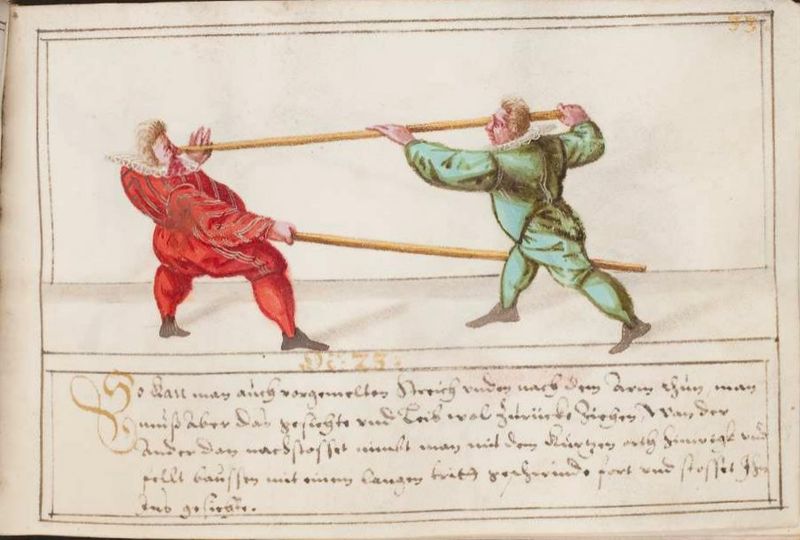 53
No: 25:
So kan man auch vorgemelten streich unden nach dem Arm thun, man
muß Aber das gesichte und Leib wol zurücke ziehen, Wan der
Ander dan nachstosset nimbt man mit dem kurtzen orth hinwegk und
fellt daussen mit einem langen tritt fort und stosset Ihn
Ins gesichte.